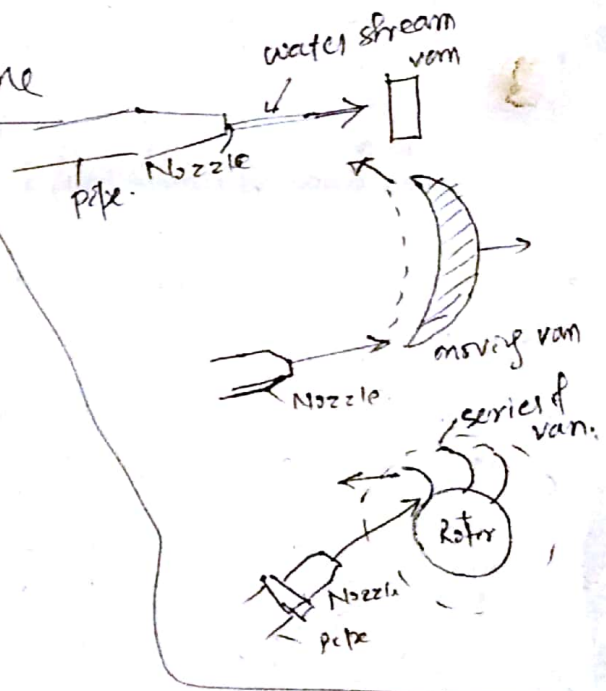 water stream
van
ne
Nozzle
pipe.
moving van
Nozzle
series of
van.
Rotor
Nozzle
pipe